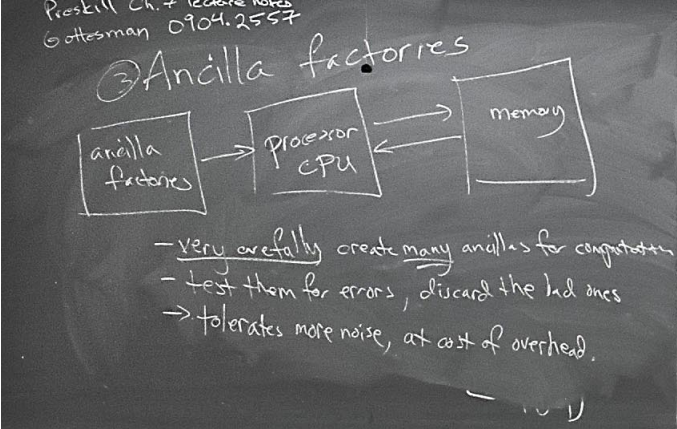 Preskill Ch. 7 lecture notes
Gottesman 0904.2557
③ Ancilla factories
ancilla factories
processor CPU
memory
- very carefully create many ancillas for computation
- test them for errors, discard the bad ones
→ tolerates more noise, at cost of overhead.